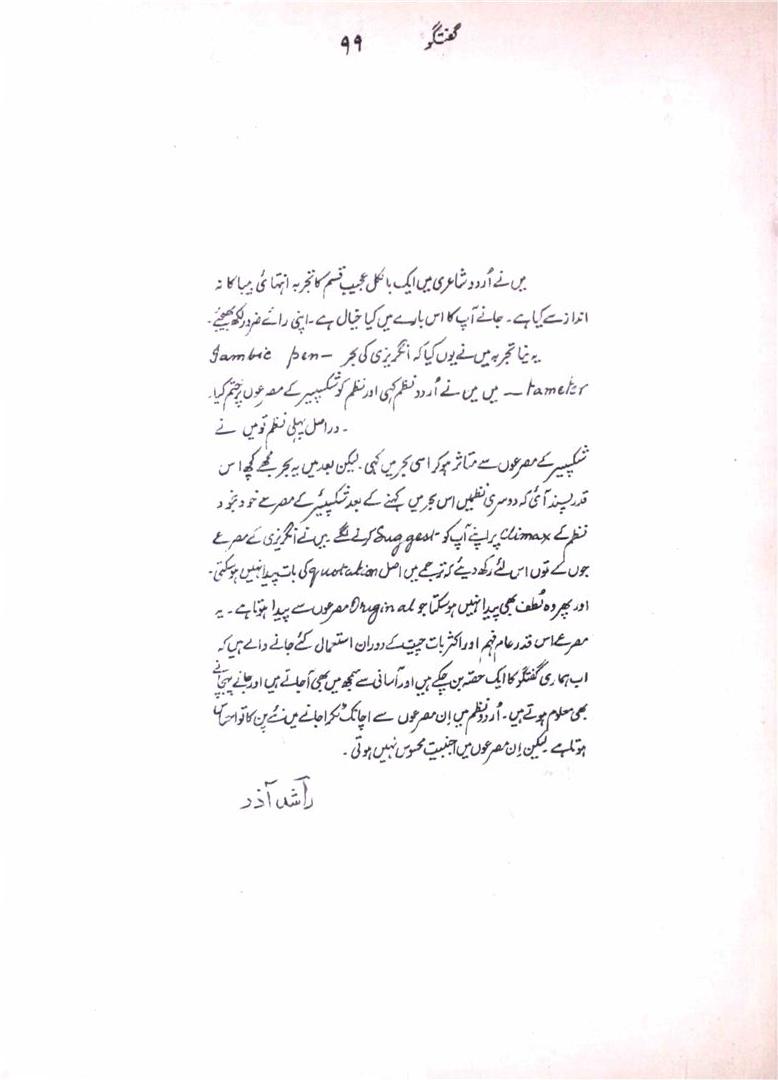 گفتگو ۹۹
میں نے اُردو شاعری میں ایک بالکل عجیب قسم کا تجربہ انتہائی بیباکانہ
انداز سے کیا ہے۔ جانے آپ کا اس بارے میں کیا خیال ہے۔ اپنی رائے ضرور لکھ بھیجئے۔
یہ نیا تجربہ میں نے یوں کیا کہ انگریزی کی بحر Iambic pen-
tameter میں میں نے اُردو نظم کہی اور نظم کو شکسپیر کے مصرعوں پر ختم کیا۔
۔ دراصل پہلی نظم تو میں نے
شکسپیر کے مصرعوں سے متاثر ہو کر اسی بحر میں کہی۔ لیکن بعد میں یہ بحر مجھے کچھ اس
قدر پسند آئی کہ دوسری نظمیں اس بحر میں کہنے کے بعد شکسپیئر کے مصرعے خود بخود
نظم کے Climax پر اپنے آپ کو Suggest کرنے لگے۔ میں نے انگریزی کے مصرعے
جوں کے توں اس لئے رکھ دیئے کہ ترجمے میں اصل quotation کی بات پیدا نہیں ہوسکتی۔
اور پھر وہ لُطف بھی پیدا نہیں ہوسکتا جو Original مصرعوں سے پیدا ہوتا ہے۔ یہ
مصرعے اس قدر عام فہم اور اکثر بات چیت کے دوران استعمال کئے جانے والے ہیں کہ
اب ہماری گفتگو کا ایک حصّہ بن چکے ہیں اور آسانی سے سمجھ میں بھی آجاتے ہیں اور جانے پہچانے
بھی معلوم ہوتے ہیں۔ اُردو نظم میں اِن مصرعوں سے اچانک ٹکرا جانے میں نئے پن کا تو احساس
ہوتا ہے لیکن اِن مصرعوں میں اجنبیت محسوس نہیں ہوتی۔
راشد آذر